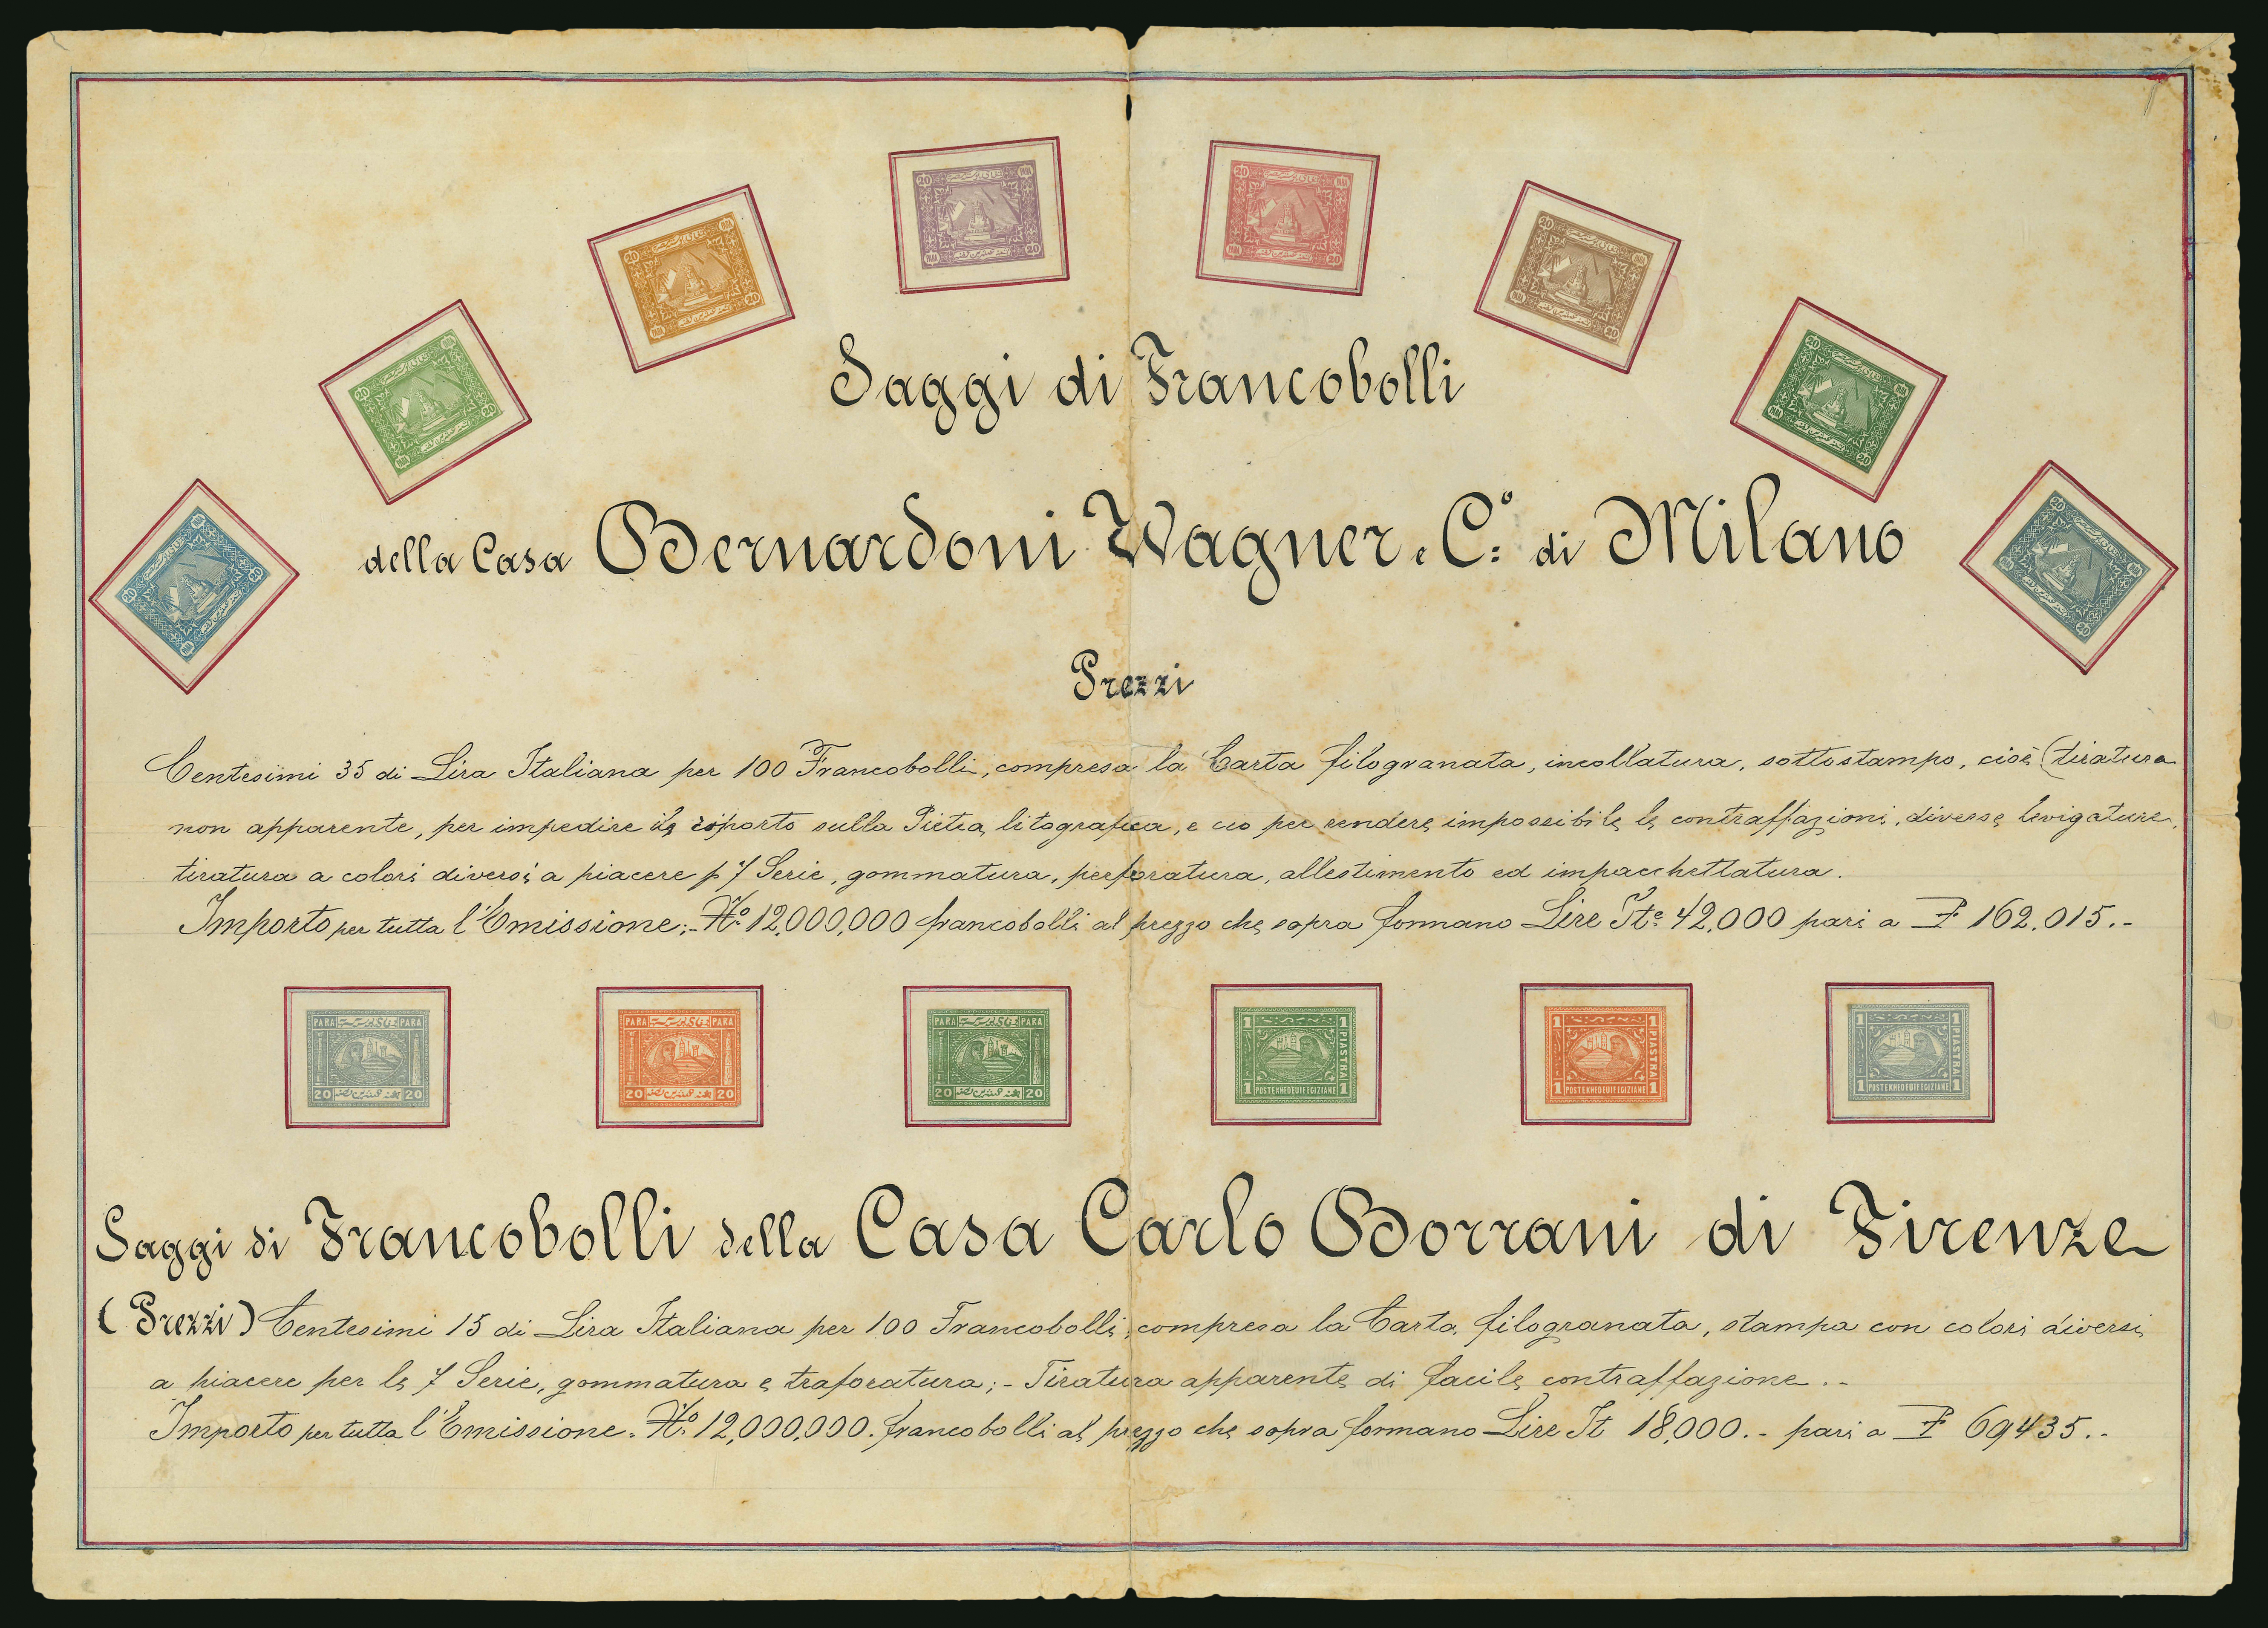 Saggi di Francobolli
della Casa Bernardoni Wagner e C.º di Milano
Prezzi
Centesimi 35 di Lira Italiana per 100 Francobolli, compresa la Carta filogranata, incollatura, sottostampo, cioè (tiratura
non apparente, per impedire il riporto sulla Pietra litografica, e ciò per rendere impossibile le contraffazioni, diverse levigature,
tiratura a colori diversi a piacere p 7 Serie, gommatura, perforatura, allestimento ed impacchettatura.
Importo per tutta l'Emissione:- Nº 12,000,000 francobolli al prezzo che sopra formano Lire Ite 42,000 pari a P 162.015.-
PARA PARA
20 20
PARA PARA
20 20
PARA PARA
20 20
1 1
PIASTRA
1 POSTE KHEDEUIE EGIZIANE 1
1 1
PIASTRA
1 POSTE KHEDEUIE EGIZIANE 1
1 1
PIASTRA
1 POSTE KHEDEUIE EGIZIANE 1
Saggi di Francobolli della Casa Carlo Borrani di Firenze
(Prezzi) Centesimi 15 di Lira Italiana per 100 Francobolli, compresa la Carta filogranata, stampa con colori diversi
a piacere per le 7 Serie, gommatura e traforatura;- Tiratura apparente di facile contraffazione.-
Importo per tutta l'Emissione. Nº 12,000,000. francobolli al prezzo che sopra formano Lire It 18,000.- pari a P 69435.-